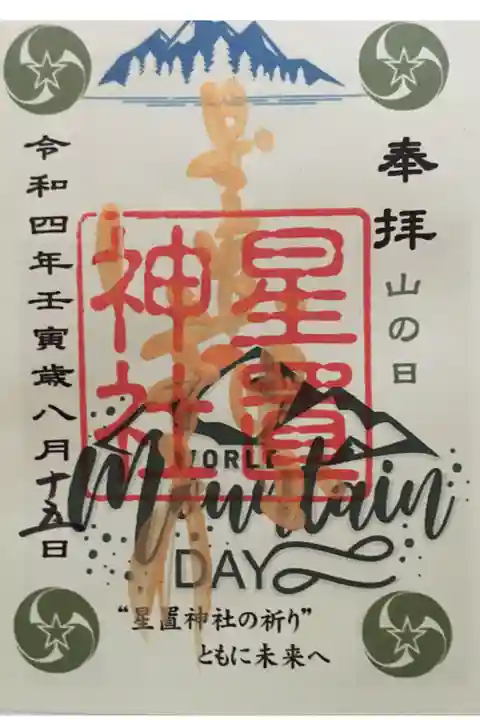 奉拝
山の日
星置
神社
令和四年壬寅歳八月十五日
WORLD
Mountain
DAY
“星置神社の祈り”
ともに未来へ